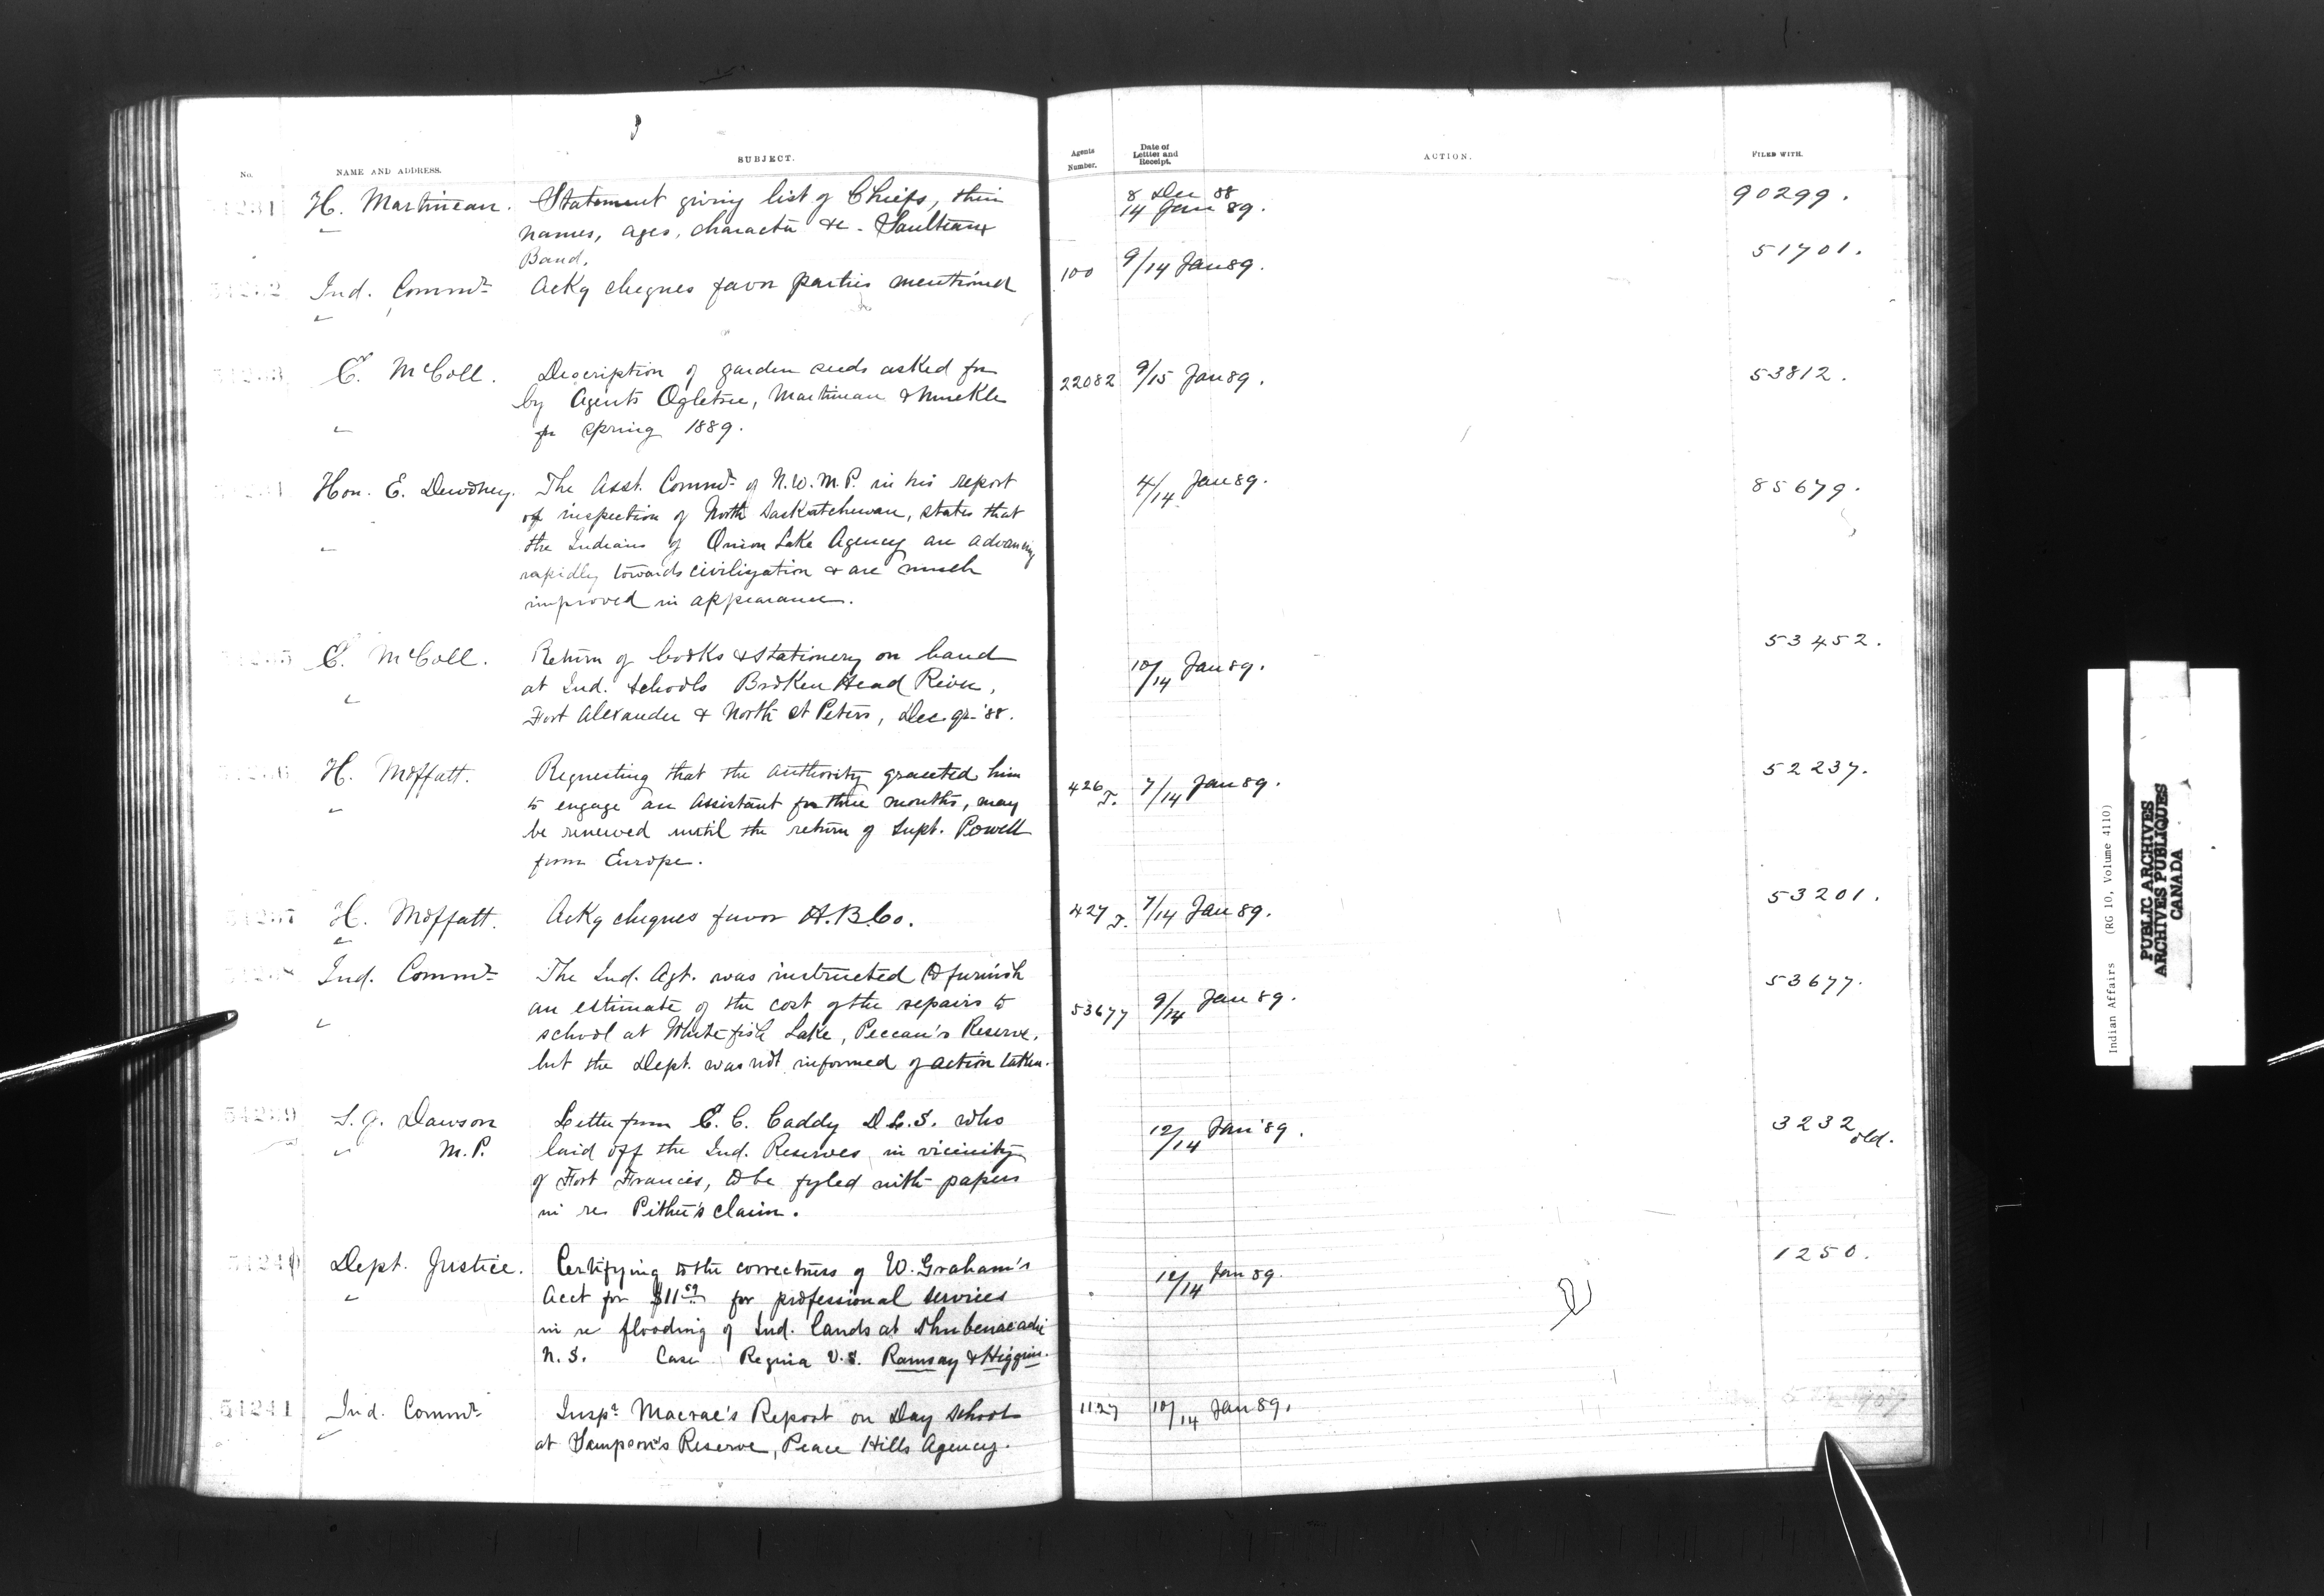 No. NAME AND ADDRESS. SUBJECT. Agents Number. Date of Letter and Receipt. ACTION. FILED WITH.
H. Martineau. Statement giving list of Chiefs, their 8 Dec 88 90299.
names, ages, character &c - Saulteaux 14 Jan 89.
Band.
Ind. Commr. Ackg cheques favor parties mentioned 100 9/14 Jan 89. 51701.
E. McColl. Description of garden seeds asked for 22082 9/15 Jan 89. 53812.
by Agents Ogletree, Martineau & Muckle
for Spring 1889.
Hon. E. Dewdney. The Asst. Commr. of N.W.M.P. in his report 4/14 Jan 89. 85679.
of inspection of North Saskatchewan, states that
the Indians of Onion Lake Agency are advancing
rapidly towards civilization & are much
improved in appearance.
E. McColl. Return of books & stationery on hand 10/14 Jan 89. 53452.
at Ind. schools Broken Head River,
Fort Alexander & North St Peters, Dec. qr. '88.
H. Moffatt. Requesting that the authority granted him 426 J. 7/14 Jan 89. 52237.
to engage an Assistant for three months, may
be renewed until the return of Supt. Powell
from Europe.
H. Moffatt. Ackg cheques favor H.B.Co. 427 J. 7/14 Jan 89. 53201.
Ind. Commr. The Ind. Agt. was instructed to furnish 53677 9/14 Jan 89. 53677.
an estimate of the cost of the repairs to
school at Whitefish Lake, Peccan's Reserve,
but the Dept. was not informed of action taken.
54239 S. J. Dawson Letter from E. C. Caddy D.L.S. who 12/14 Jan '89. 3232 old.
M.P. laid off the Ind. Reserves in vicinity
of Fort Francis, to be fyled with papers
in re Pither's claim.
54240 Dept. Justice. Certifying to the correctness of W. Graham's 12/14 Jan 89. 1250.
Acct for $11 for professional services
in re flooding of Ind. lands at Shubenacadie
N.S. Case Regina v.s. Ramsay & Higgins.
54241 Ind. Commr. Inspr. Macrae's Report on Day School 1127 10/14 Jan 89.
at Sampson's Reserve, Peace Hills Agency.
Indian Affairs (RG 10, Volume 4110)
PUBLIC ARCHIVES
ARCHIVES PUBLIQUES
CANADA